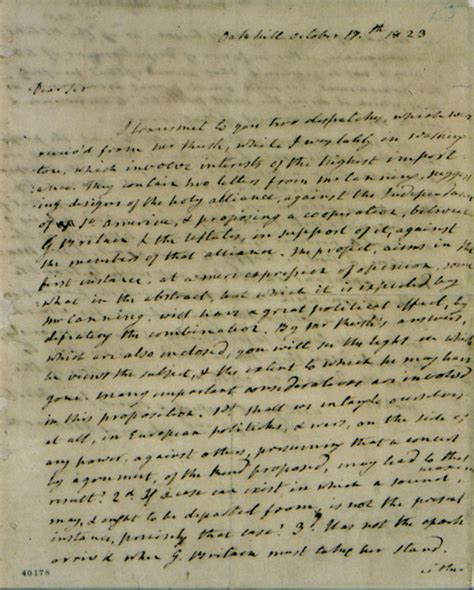 Oakhill October 17.th 1823
Dear Sir
I transmit to you two despatches, which were
receiv'd from Mr Rush, while I was lately in Washing
ton, which involve interests of the highest import
ance. They contain two letters from Mr Canning, suggest
ing designs of the holy alliance, against the Independence
of So America, & proposing a cooperation, between
G. Britain & the UStates, in support of it, against
the members of that alliance. The project, aims in the
first instance, at a mere expression of opinion, some
what in the abstract, but which it is expected by
Mr Canning, will have a great political effect, by
defeating the combination. By Mr Rush's answers,
which are also enclosed, you will see the light in which
he views the subject, & the extent to which he may have
gone. Many important considerations are involved
in this proposition. 1st Shall we entangle ourselves,
at all, in European politicks, & wars, on the side of
any power, against others, presuming that a concert
by agreement, of the kind proposed, may lead to that
result? 2d If a case can exist in which a sound maxim
may, & ought to be departed from, is not the present
instance, precisely that case? 3d Has not the epoch
arriv'd when G. Britain must take her stand,
either
40178